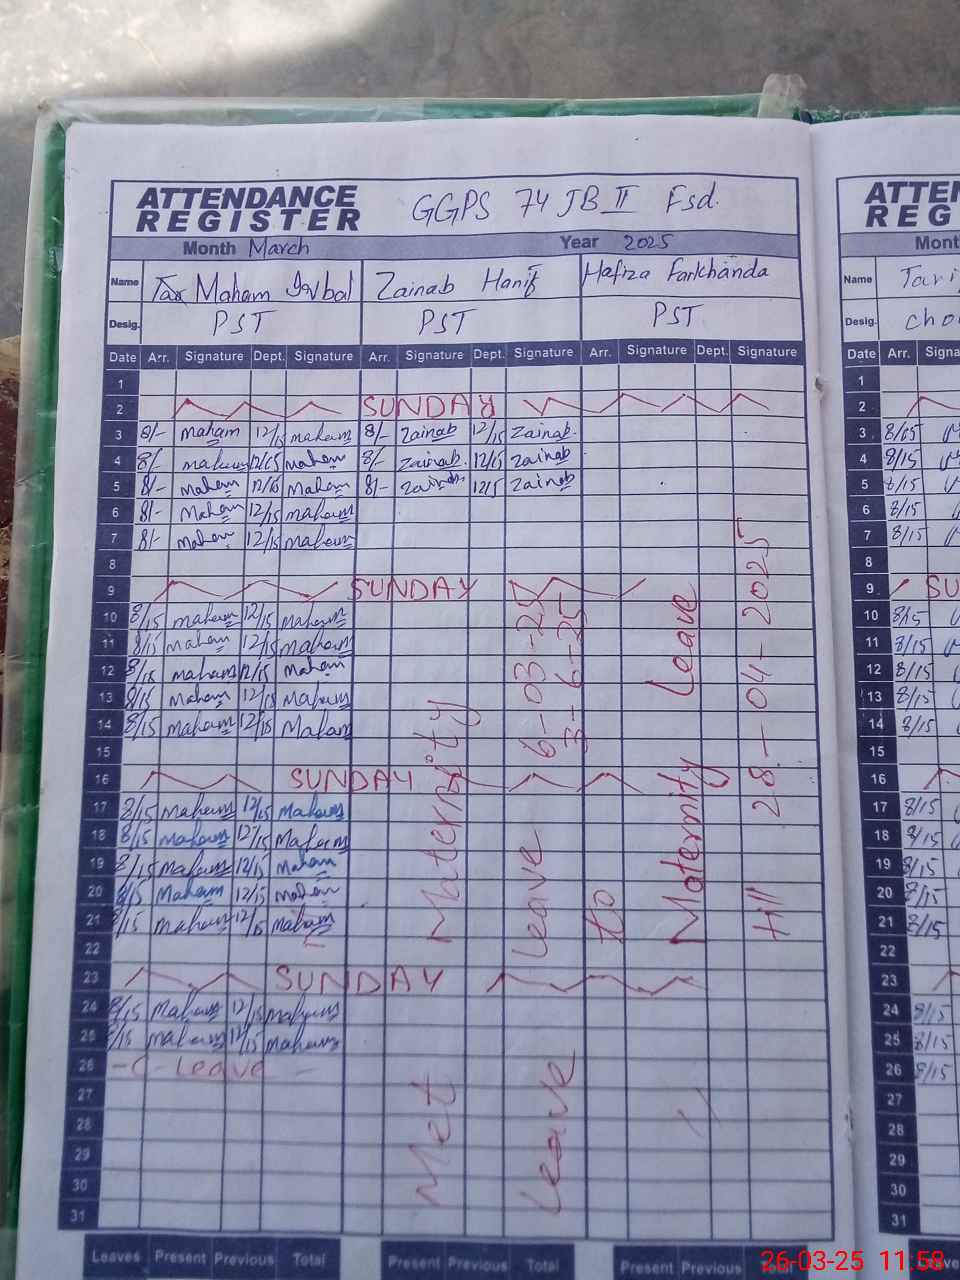 ATTENDANCE REGISTER GGPS 74 JB II Fsd.
Month March Year 2025
Name Maham Iqbal Zainab Hanif Hafiza Farkhanda
Desig. PST PST PST
Date Arr. Signature Dept. Signature Arr. Signature Dept. Signature Arr. Signature Dept. Signature
1
2 SUNDAY
3 8/- maham 12/15 maham 8/- Zainab 12/15 Zainab
4 8/- maham 12/15 maham 8/- Zainab 12/15 Zainab
5 8/- Maham 12/15 Maham 8/- Zainab 12/15 Zainab
6 8/- Maham 12/15 maham
7 8/- Maham 12/15 maham
8
9 SUNDAY
10 8/15 maham 12/15 Maham
11 8/15 maham 12/15 maham
12 8/15 maham 12/15 Maham
13 8/15 Maham 12/15 Maham
14 8/15 maham 12/15 Maham
15
16 SUNDAY
17 8/15 Maham 12/15 Maham
18 8/15 Maham 12/15 Maham
19 8/15 Maham 12/15 Maham
20 8/15 Maham 12/15 Maham
21 8/15 Maham 12/15 Maham
22
23 SUNDAY
24 8/15 Maham 12/15 Maham
25 8/15 Maham 12/15 Maham
26 - C - Leave -
27
28
29
30
31
Maternity
Leave 6-03-25
to 3-6-25
Maternity Leave
till 28-04-2025
Met
Leave
Leaves Present Previous Total Present Previous Total Present
ATTEN
REG
Mont
Name Tari
Desig. cho
Date Arr. Signa
1
2
3 8/15
4 8/15
5 8/15
6 8/15
7 8/15
8
9 SU
10 8/15
11 8/15
12 8/15
13 8/15
14 8/15
15
16
17 8/15
18 8/15
19 8/15
20 8/15
21 8/15
22
23
24 8/15
25 8/15
26 8/15
27
28
29
30
31
26-03-25 11:58